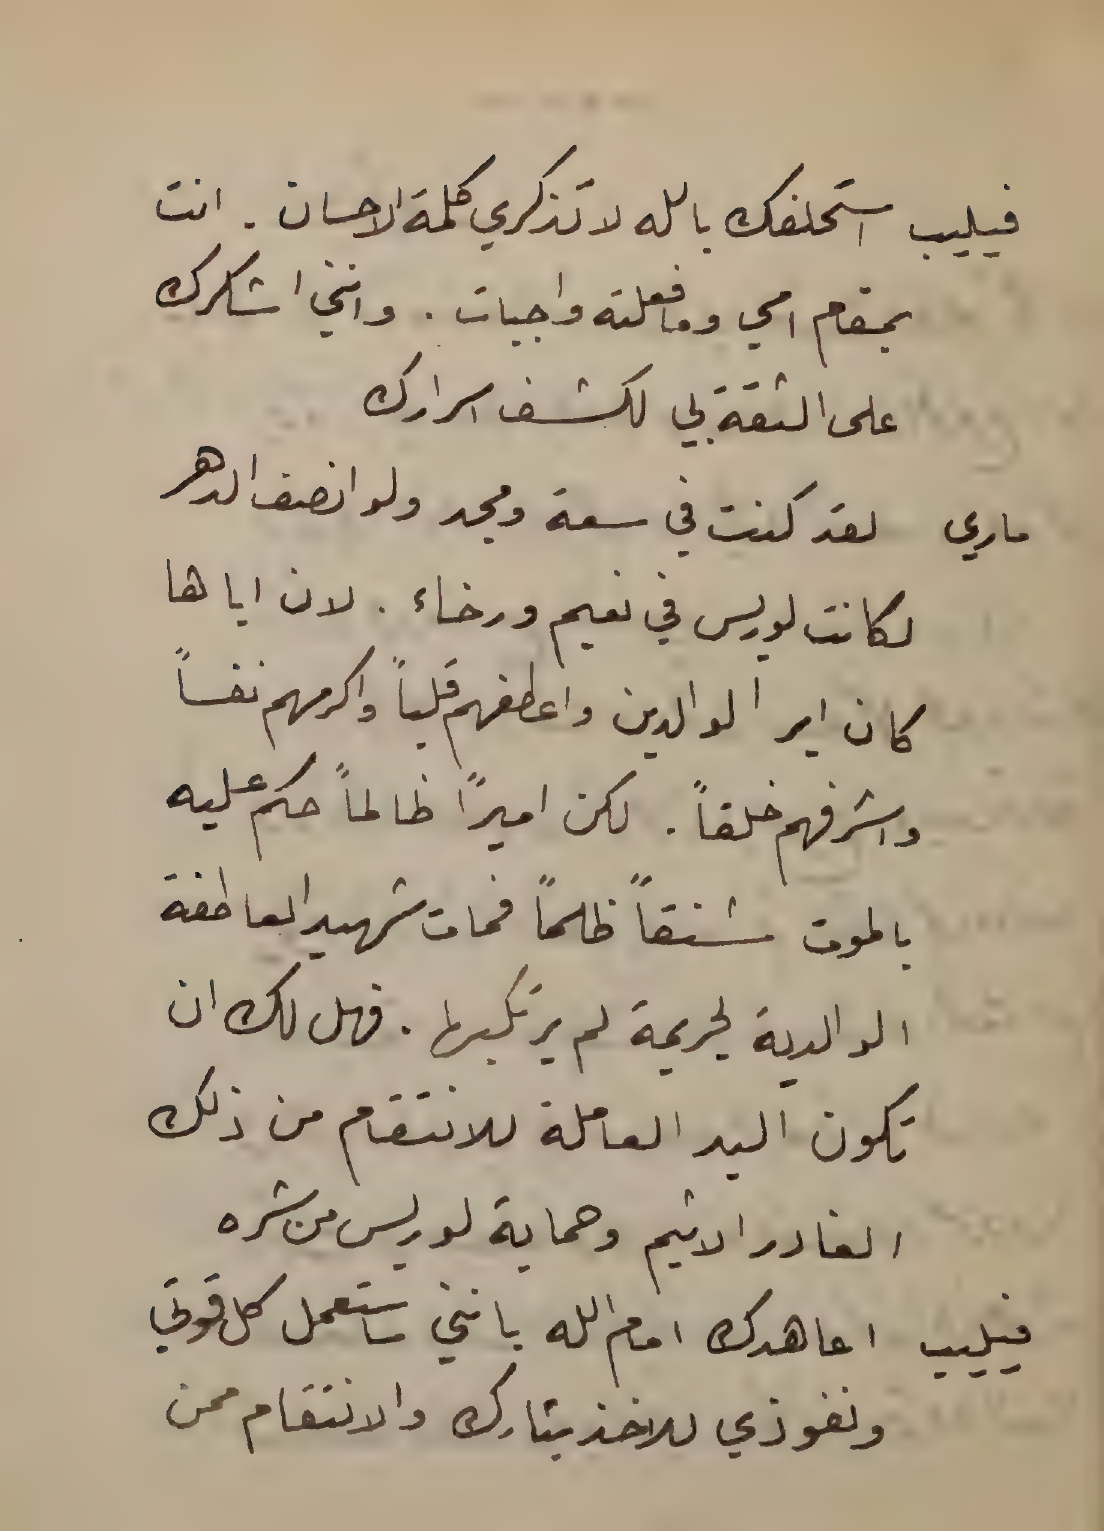 فيليب استحلفك بالله لا تذكري كلمة الاحسان . انت
بمقام امي وما فعلته واجبات . وانني اشكرك
على الثقة بي لكشف اسرارك
ماري لقد كنت في سعة ومجد ولو انصف الدهر
لكانت لوريس في نعيم ورخاء . لان اباها
كان ابر الوالدين واعطفهم قلباً واكرمهم نفساً
واشرفهم خلقاً . لكن اميراً ظالماً حكم عليه
بالموت شنقاً ظلماً فمات شهيد العاطفة
الوالدية لجريمة لم يرتكبها . فهل لك ان
تكون اليد العاملة للانتقام من ذلك
الغادر الاثيم وحماية لوريس من شره
فيليب اعاهدك امام الله بانني ساستعمل كل قوتي
ونفوذي للاخذ بثارك والانتقام ممن